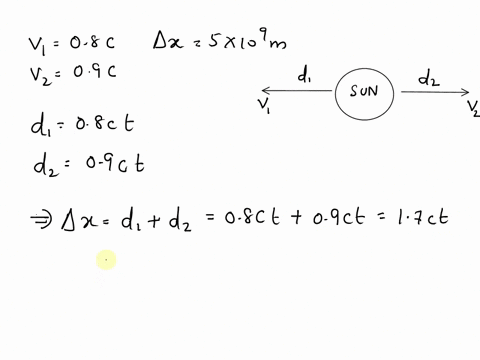 V₁ = 0.8C   Δx = 5×10⁹m
V₂ = 0.9C
d₁ d₂
SUN
V₁ V₂
d₁ = 0.8c t
d₂ = 0.9c t
⇒ Δx = d₁ + d₂ = 0.8Ct + 0.9ct = 1.7ct